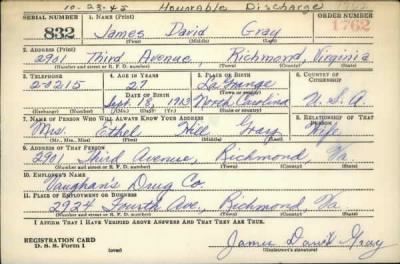 10-23-45 Honorable Discharge
SERIAL NUMBER 1. NAME (Print) ORDER NUMBER
832 James David Gray 1762
(First) (Middle) (Last)
2. ADDRESS (Print)
2901 Third Avenue, Richmond, Virginia
(Number and street or R. F. D. number) (Town) (County) (State)
3. TELEPHONE 4. AGE IN YEARS 5. PLACE OF BIRTH 6. COUNTRY OF CITIZENSHIP
20215 27 La Grange
DATE OF BIRTH (Town or county)
Sept. 18, 1913 North Carolina U.S.A.
(Exchange) (Number) (Mo.) (Day) (Yr.) (State or country)
7. NAME OF PERSON WHO WILL ALWAYS KNOW YOUR ADDRESS 8. RELATIONSHIP OF THAT PERSON
Mrs. Ethel Gray Wife
(Mr., Mrs., Miss) (First) (Middle) (Last)
9. ADDRESS OF THAT PERSON
2901 Third Avenue, Richmond, Va.
(Number and street or R. F. D. number) (Town) (County) (State)
10. EMPLOYER'S NAME
Vaughan's Drug Co.
11. PLACE OF EMPLOYMENT OR BUSINESS
2924 Fourth Ave., Richmond, Va.
(Number and street or R. F. D. number) (Town) (County) (State)
I AFFIRM THAT I HAVE VERIFIED ABOVE ANSWERS AND THAT THEY ARE TRUE.
REGISTRATION CARD
D. S. S. Form 1 (over) James David Gray
(Registrant's signature)